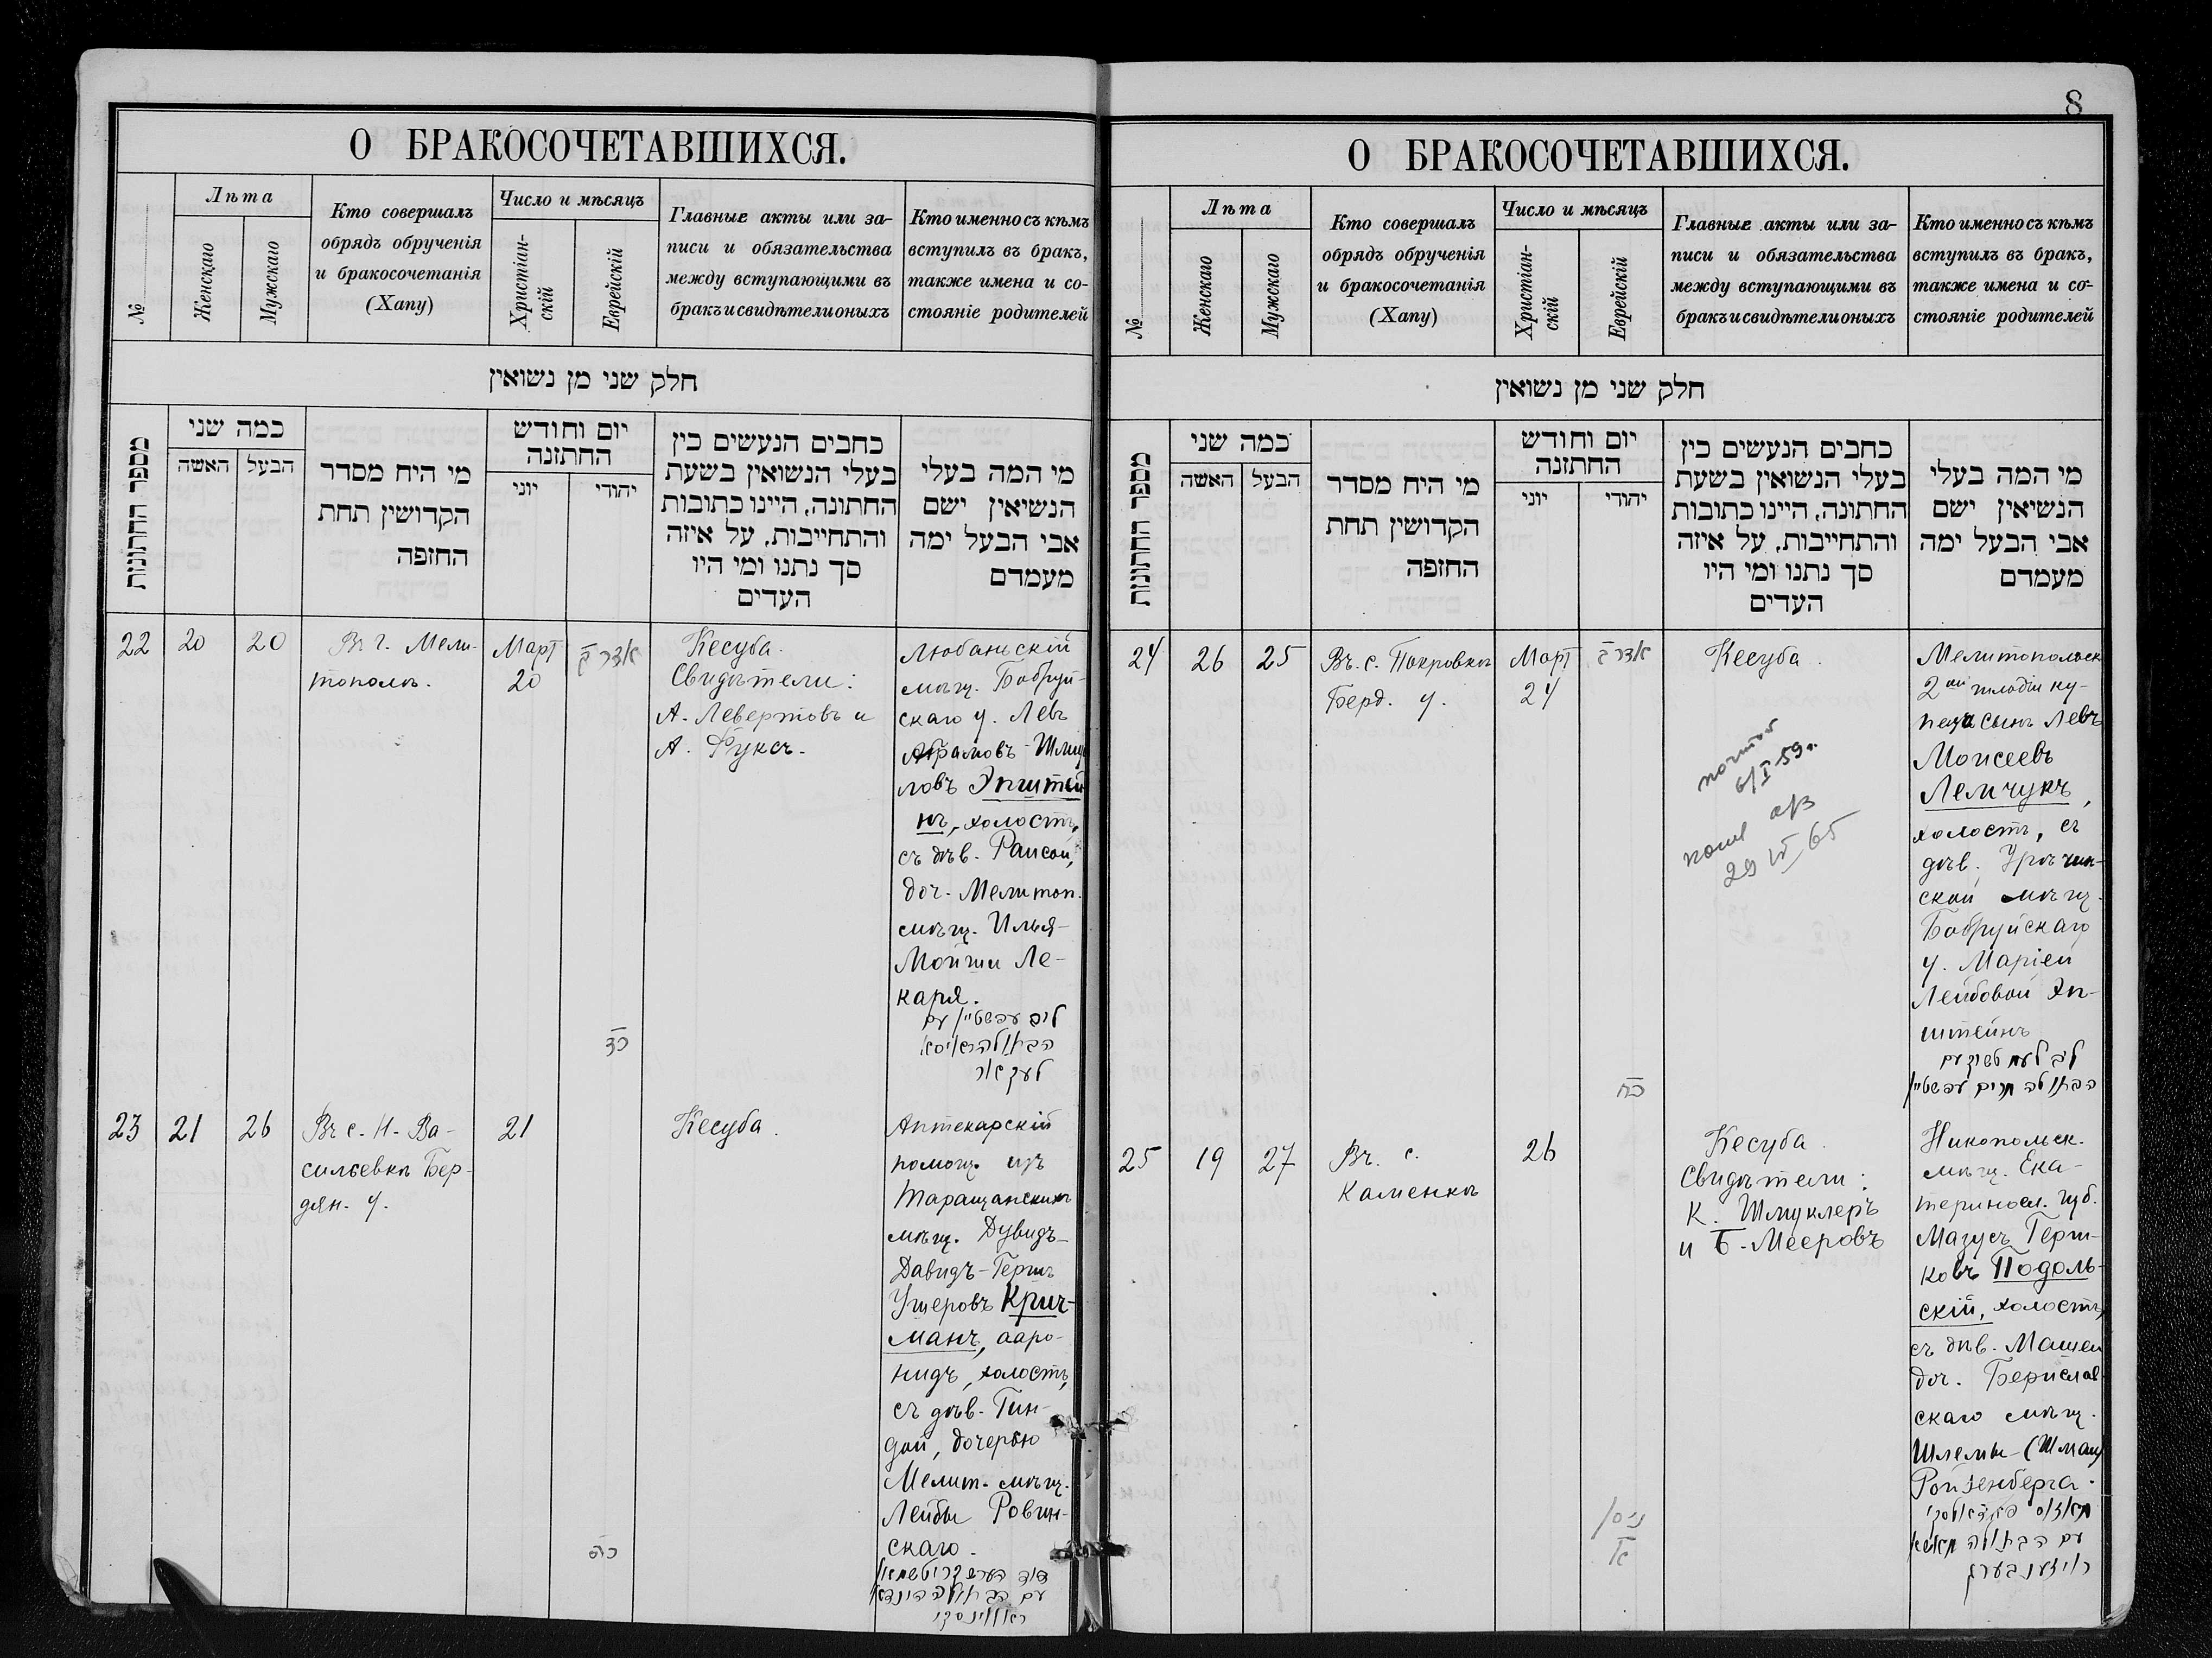 8
О БРАКОСОЧЕТАВШИХСЯ.
№
Лѣта
Женскаго
Мужскаго
Кто совершалъ
обрядъ обрученія
и бракосочетанія
(Хапу)
Число и мѣсяцъ
Христіан-
скій
Еврейскій
Главные акты или за-
писи и обязательства
между вступающими въ
бракъ и свидѣтели оныхъ
Кто именно съ кѣмъ
вступилъ въ бракъ,
также имена и со-
стояніе родителей
חלק שני מן נשואין
מספר החתונות
כמה שני
האשה
הבעל
מי היח מסדר
הקדושין תחת
החזפה
יום וחודש
החתזנה
יוני
יהודי
כחבים הנעשים כין
בעלי הנשואין בשעת
החתונה, היינו כתובות
והתחייבות, על איזה
סך נתנו ומי היו
העדים
מי המה בעלי
הנשיאין ישם
אבי הבעל ימה
מעמדם
22
20
20
Въ г. Мели-
тополѣ.
Март
20
אדר ב
כג
Кесуба.
Свидѣтели:
А. Левертовъ и
А. Фуксъ.
Любаньскій
мѣщ. Бобруй-
скаго у. Левъ
Абрамовъ-Шму
ловъ Эпштей
нъ, холостъ,
съ дѣв. Раисой,
доч. Мелитоп.
мѣщ. Илья-
Мойши Ле-
каря.
ליב עפשטיין עם
הבתולה ראיסא
לעקאר
23
21
26
Въ с. Н-Ва-
сильевкѣ Бер-
дян. у.
21
כה
Кесуба.
Аптекарскій
помощ. изъ
Таращанскихъ
мѣщ. Дувидъ-
Давидъ-Гершъ
Ушеровъ Крич-
манъ, ааро-
нидъ, холостъ,
съ дѣв. Гин-
дой, дочерью
Мелит. мѣщ.
Лейбы Ровин-
скаго.
דוד הערש קריטשמאן
עם הבתולה הינדא
ראווינסקי
О БРАКОСОЧЕТАВШИХСЯ.
№
Лѣта
Женскаго
Мужскаго
Кто совершалъ
обрядъ обрученія
и бракосочетанія
(Хапу)
Число и мѣсяцъ
Христіан-
скій
Еврейскій
Главные акты или за-
писи и обязательства
между вступающими въ
бракъ и свидѣтели оныхъ
Кто именно съ кѣмъ
вступилъ въ бракъ,
также имена и со-
стояніе родителей
חלק שני מן נשואין
מספר החתונות
כמה שני
האשה
הבעל
מי היח מסדר
הקדושין תחת
החזפה
יום וחודש
החתזנה
יוני
יהודי
כחבים הנעשים כין
בעלי הנשואין בשעת
החתונה, היינו כתובות
והתחייבות, על איזה
סך נתנו ומי היו
העדים
מי המה בעלי
הנשיאין ישם
אבי הבעל ימה
מעמדם
24
26
25
Въ. с. Покровкѣ
Берд. у.
Март
24
אדר ב
כח
Кесуба.
6/I 59 г.
29 VI 65
Мелитопольск
2ой гильдіи ку-
пеца сынъ Левъ
Моисеевъ
Лемчукъ,
холостъ, съ
дѣв.
ской мѣщ.
Бобруйскаго
у. Маріей
Лейбовой Эп-
штейнъ
ליב לעמטשוק עם
הבתולה מרים עפשטיין
25
19
27
Въ. с.
Каменкѣ
26
ניסן
א
Кесуба.
Свидѣтели:
К. Шмуклеръ
и Б. Мееровъ
Никопольск.
мѣщ. Ека-
теринос. губ.
Мазусъ Герш-
ковъ Подоль-
скій, холостъ,
съ дѣв. Машей
доч. Берислав
скаго мѣщ.
Шлемы-
Ройзенберга.
מאזוס פאדאלסקי
עם הבתולה מאשא
רויזענבערג